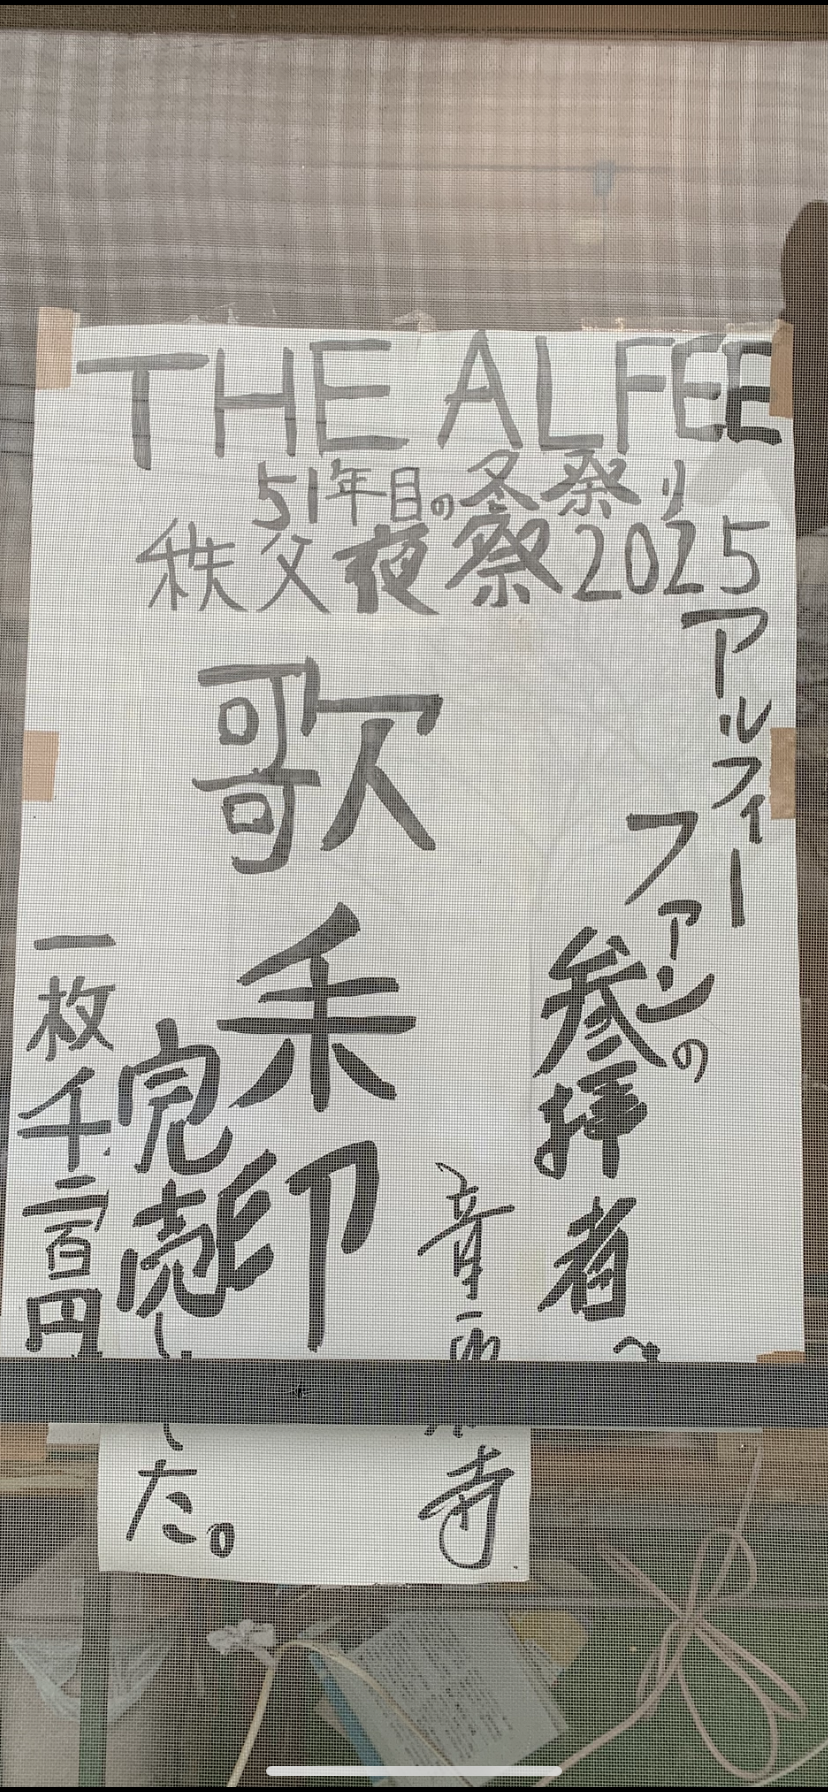 THE ALFEE
51年目の冬祭り
秩父夜祭2025
アルフィー
ファンの
参拝者へ
歌朱印
音楽寺
完売しました。
一枚千二百円